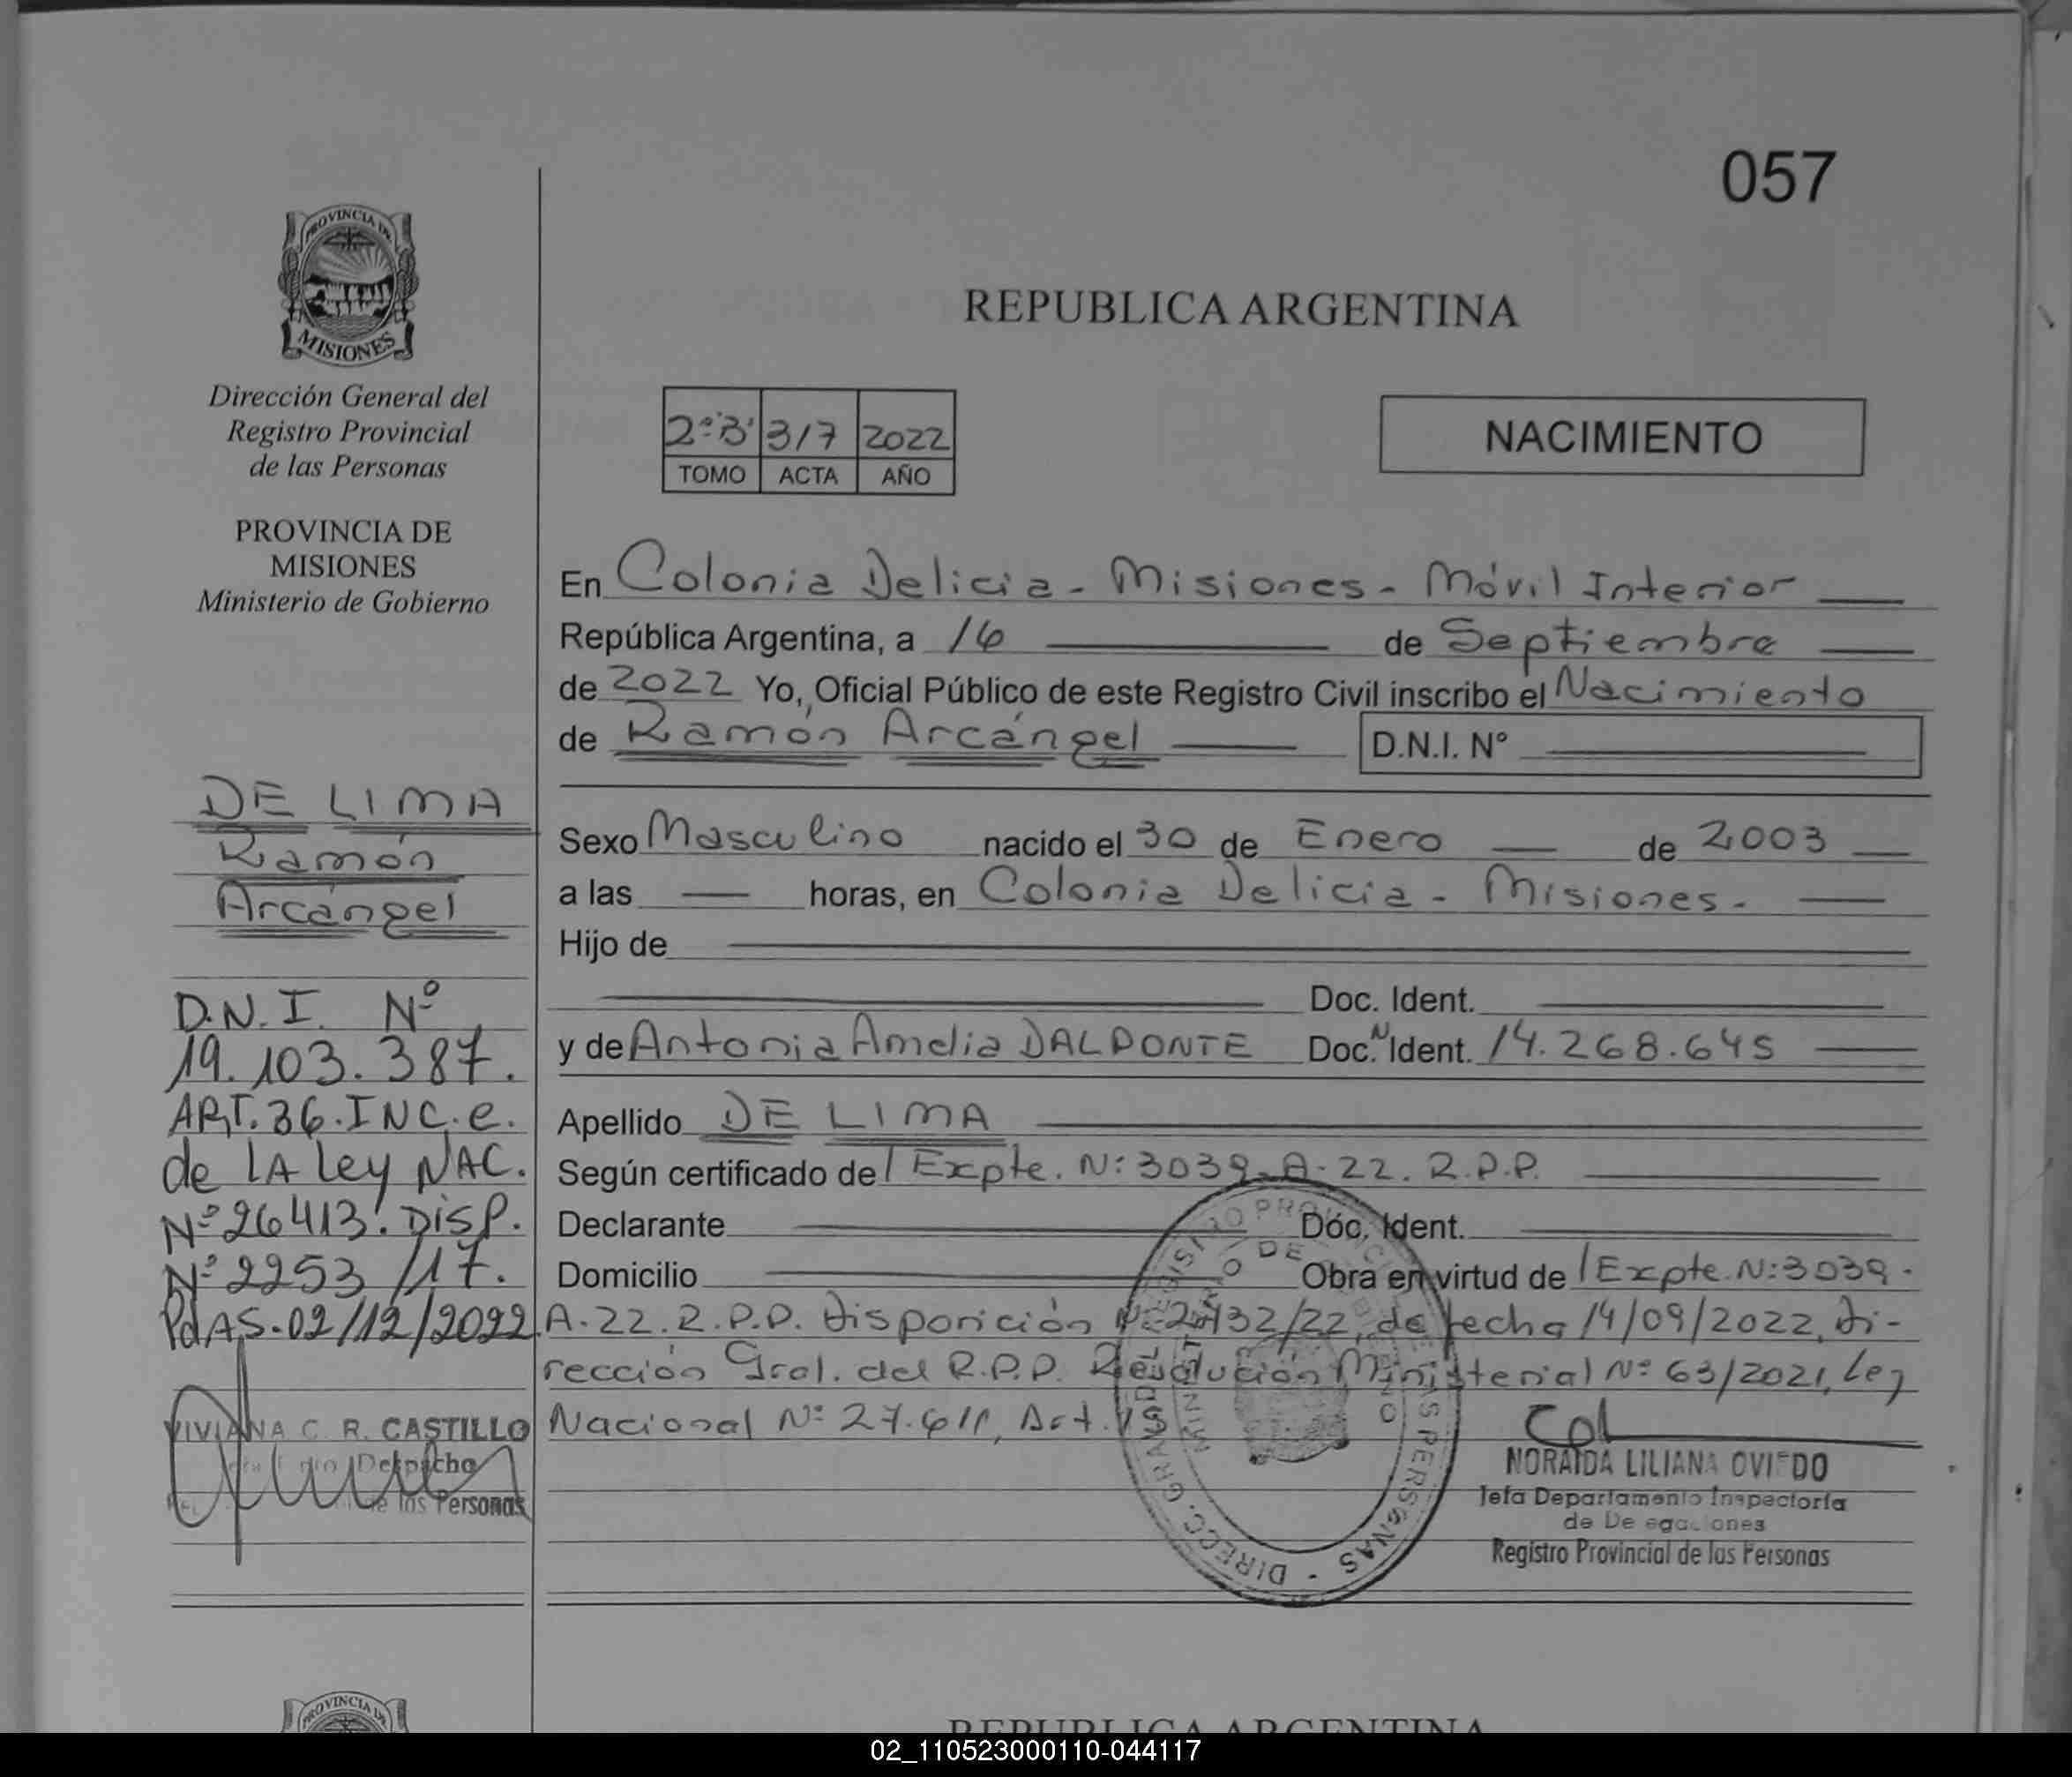 057
PROVINCIA DE
MISIONES
Dirección General del
Registro Provincial
de las Personas
PROVINCIA DE
MISIONES
Ministerio de Gobierno
REPUBLICA ARGENTINA
2º"B" 317 2022
TOMO ACTA AÑO
NACIMIENTO
En Colonia Delicia - Misiones - Móvil Interior
República Argentina, a 16 de Septiembre
de 2022 Yo, Oficial Público de este Registro Civil inscribo el Nacimiento
de Ramón Arcángel D.N.I. N°
DE LIMA
Ramón
Arcángel
Sexo Masculino nacido el 30 de Enero de 2003
a las horas, en Colonia Delicia - Misiones -
Hijo de
Doc. Ident.
y de Antonia Amelia DALPONTE Doc.N Ident. 14.268.645
Apellido DE LIMA
Según certificado de Expte. Nº 3039-A-22. R.P.P.
Declarante Doc. Ident.
Domicilio Obra en virtud de Expte. Nº 3039-
A-22. R.P.P. Disposición Nº 2432/22, de fecha 14/09/2022, Di-
rección Gral. del R.P.P. Resolución Ministerial Nº 63/2021, Ley
Nacional Nº 27.611, Art.
D.N.I. Nº
19.103.387.
ART. 36. INC. e.
de LA Ley NAC.
Nº 26413. DISP.
Nº 2253/17.
PdAS. 02/12/2022.
VIVIANA C. R. CASTILLO
Despacho
de las Personas
NORAIDA LILIANA OVIEDO
Jefa Departamento Inspectoría
de Delegaciones
Registro Provincial de las Personas
DIRECC. GRAL. DEL REGISTRO PROVINCIAL DE LAS PERSONAS -
MINISTERIO DE GOBIERNO
PROVINCIA DE
REPUBLICA ARGENTINA
02_110523000110-044117